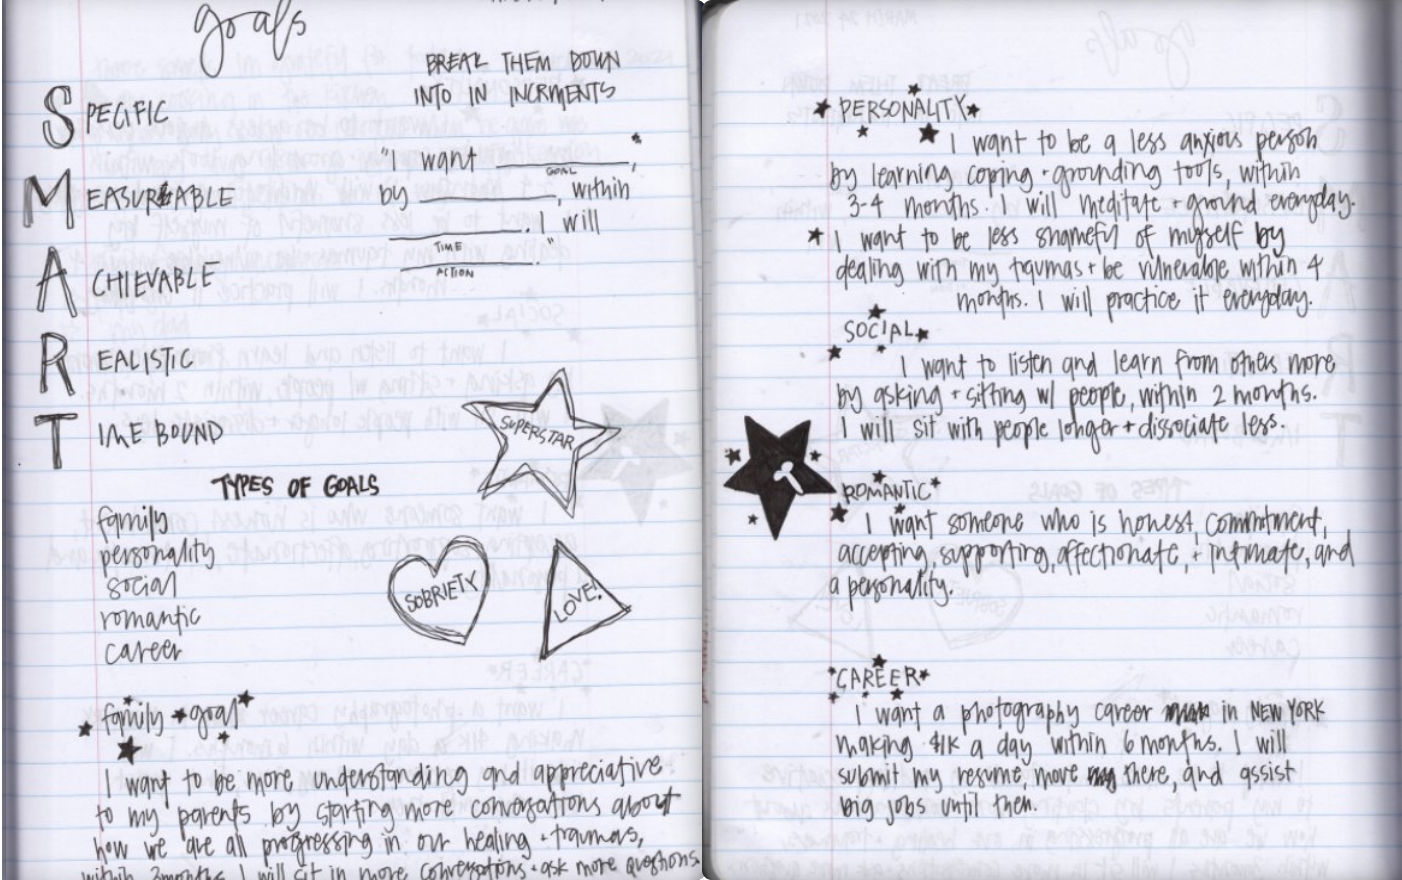 goals
BREAK THEM DOWN
INTO IN INCRMENTS
SPECIFIC
MEASUREABLE
ACHIEVABLE
REALISTIC
TIME BOUND
"I want ________,
GOAL
by ________, within
________. I will
TIME
________."
ACTION
SUPERSTAR
TYPES OF GOALS
family
personality
social
romantic
career
SOBRIETY
LOVE!
family goal
I want to be more understanding and appreciative
to my parents by starting more conversations about
how we are all progressing in our healing + traumas,
within 3 months I will sit in more conversations + ask more questions.
PERSONALITY
I want to be a less anxious person
by learning coping + grounding tools, within
3-4 months. I will meditate + ground everyday.
I want to be less shameful of myself by
dealing with my traumas + be vulnerable within 4
months. I will practice it everyday.
SOCIAL
I want to listen and learn from others more
by asking + sitting w/ people, within 2 months.
I will sit with people longer + dissociate less.
ROMANTIC
I want someone who is honest, commitment,
accepting, supporting, affectionate, intimate, and
a personality.
CAREER
I want a photography career in NEW YORK
making $1K a day within 6 months. I will
submit my resume, move there, and assist
big jobs until then.